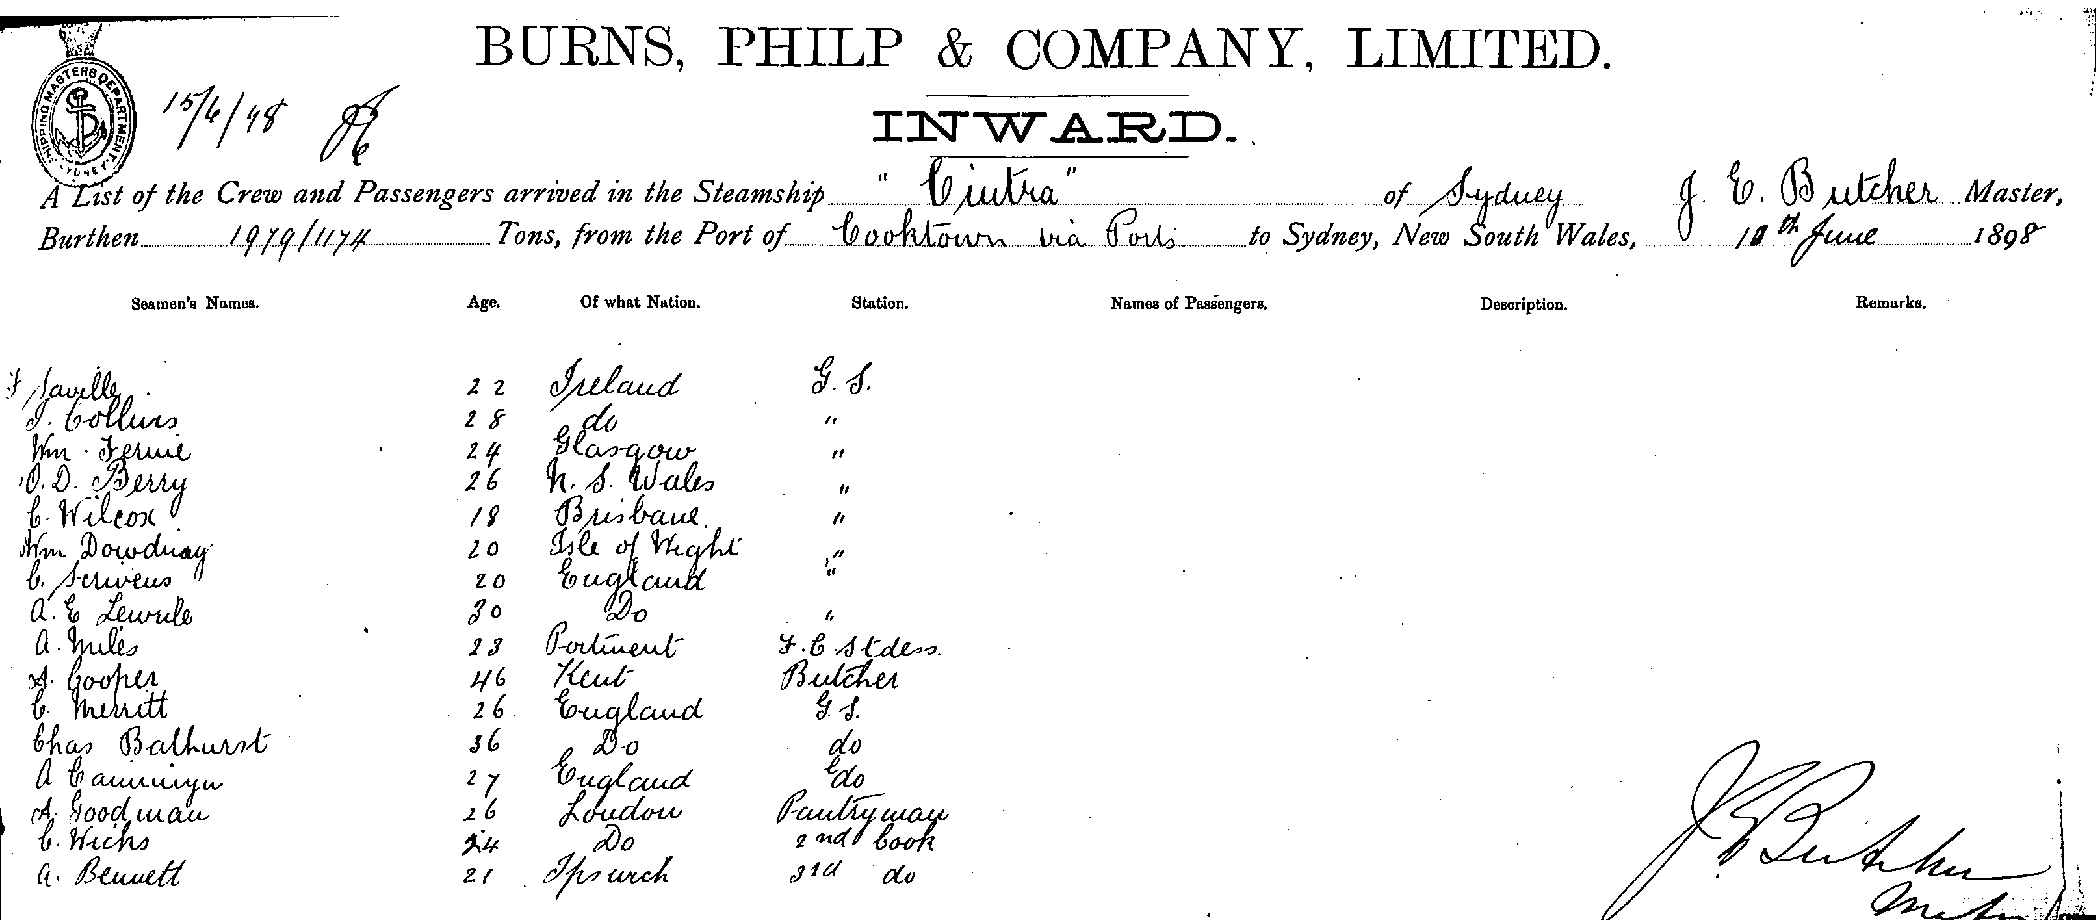 BURNS, PHILP & COMPANY, LIMITED.
SHIPPING MASTERS DEPARTMENT SYDNEY
15/6/98
INWARD.
A List of the Crew and Passengers arrived in the Steamship "Cintra" of Sydney J. E. Butcher Master,
Burthen 1979/1174 Tons, from the Port of Cooktown via Ports to Sydney, New South Wales, June 1898
Seamen's Names. Age. Of what Nation. Station. Names of Passengers. Description. Remarks.
F Saville 22 Ireland G. S.
J. Collins 28 do "
Wm. Fernie 24 Glasgow "
D. Berry 26 N. S. Wales "
C. Wilcox 18 Brisbane. "
Wm 20 Isle of Wight "
C. Scrivens 20 England "
A. E 30 Do "
A. Miles 23 F. C Stdess
Cooper 46 Kent Butcher
C. Merritt 26 England G S.
Chas Bathurst 36 Do do
A 27 England do
Goodman 26 London Pantryman
C. Wicks 24 Do 2nd Cook
A. Bennett 21 3rd do
J E Butcher